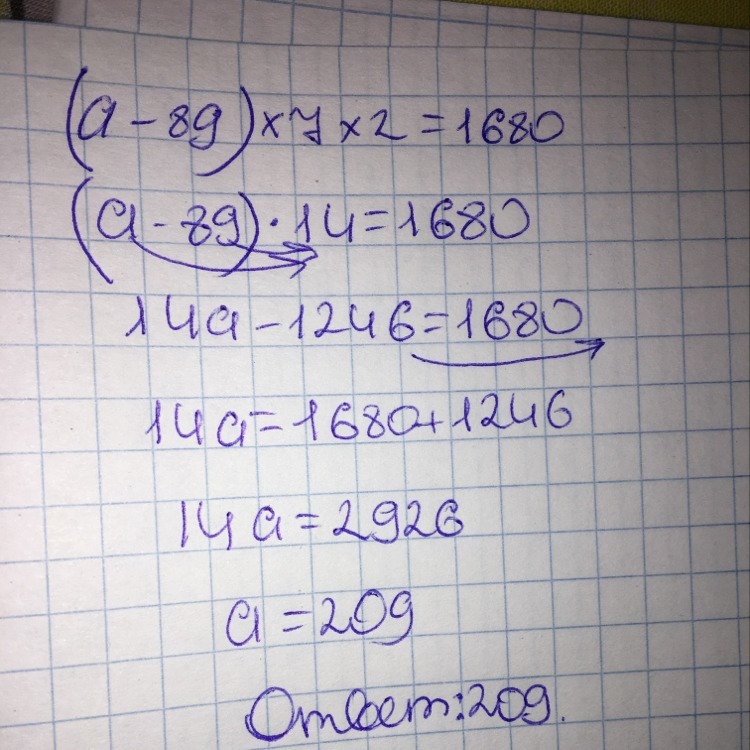 (a - 89) × 7 × 2 = 1680
(a - 89) · 14 = 1680
14a - 1246 = 1680
14a = 1680 + 1246
14a = 2926
a = 209
Ответ: 209.